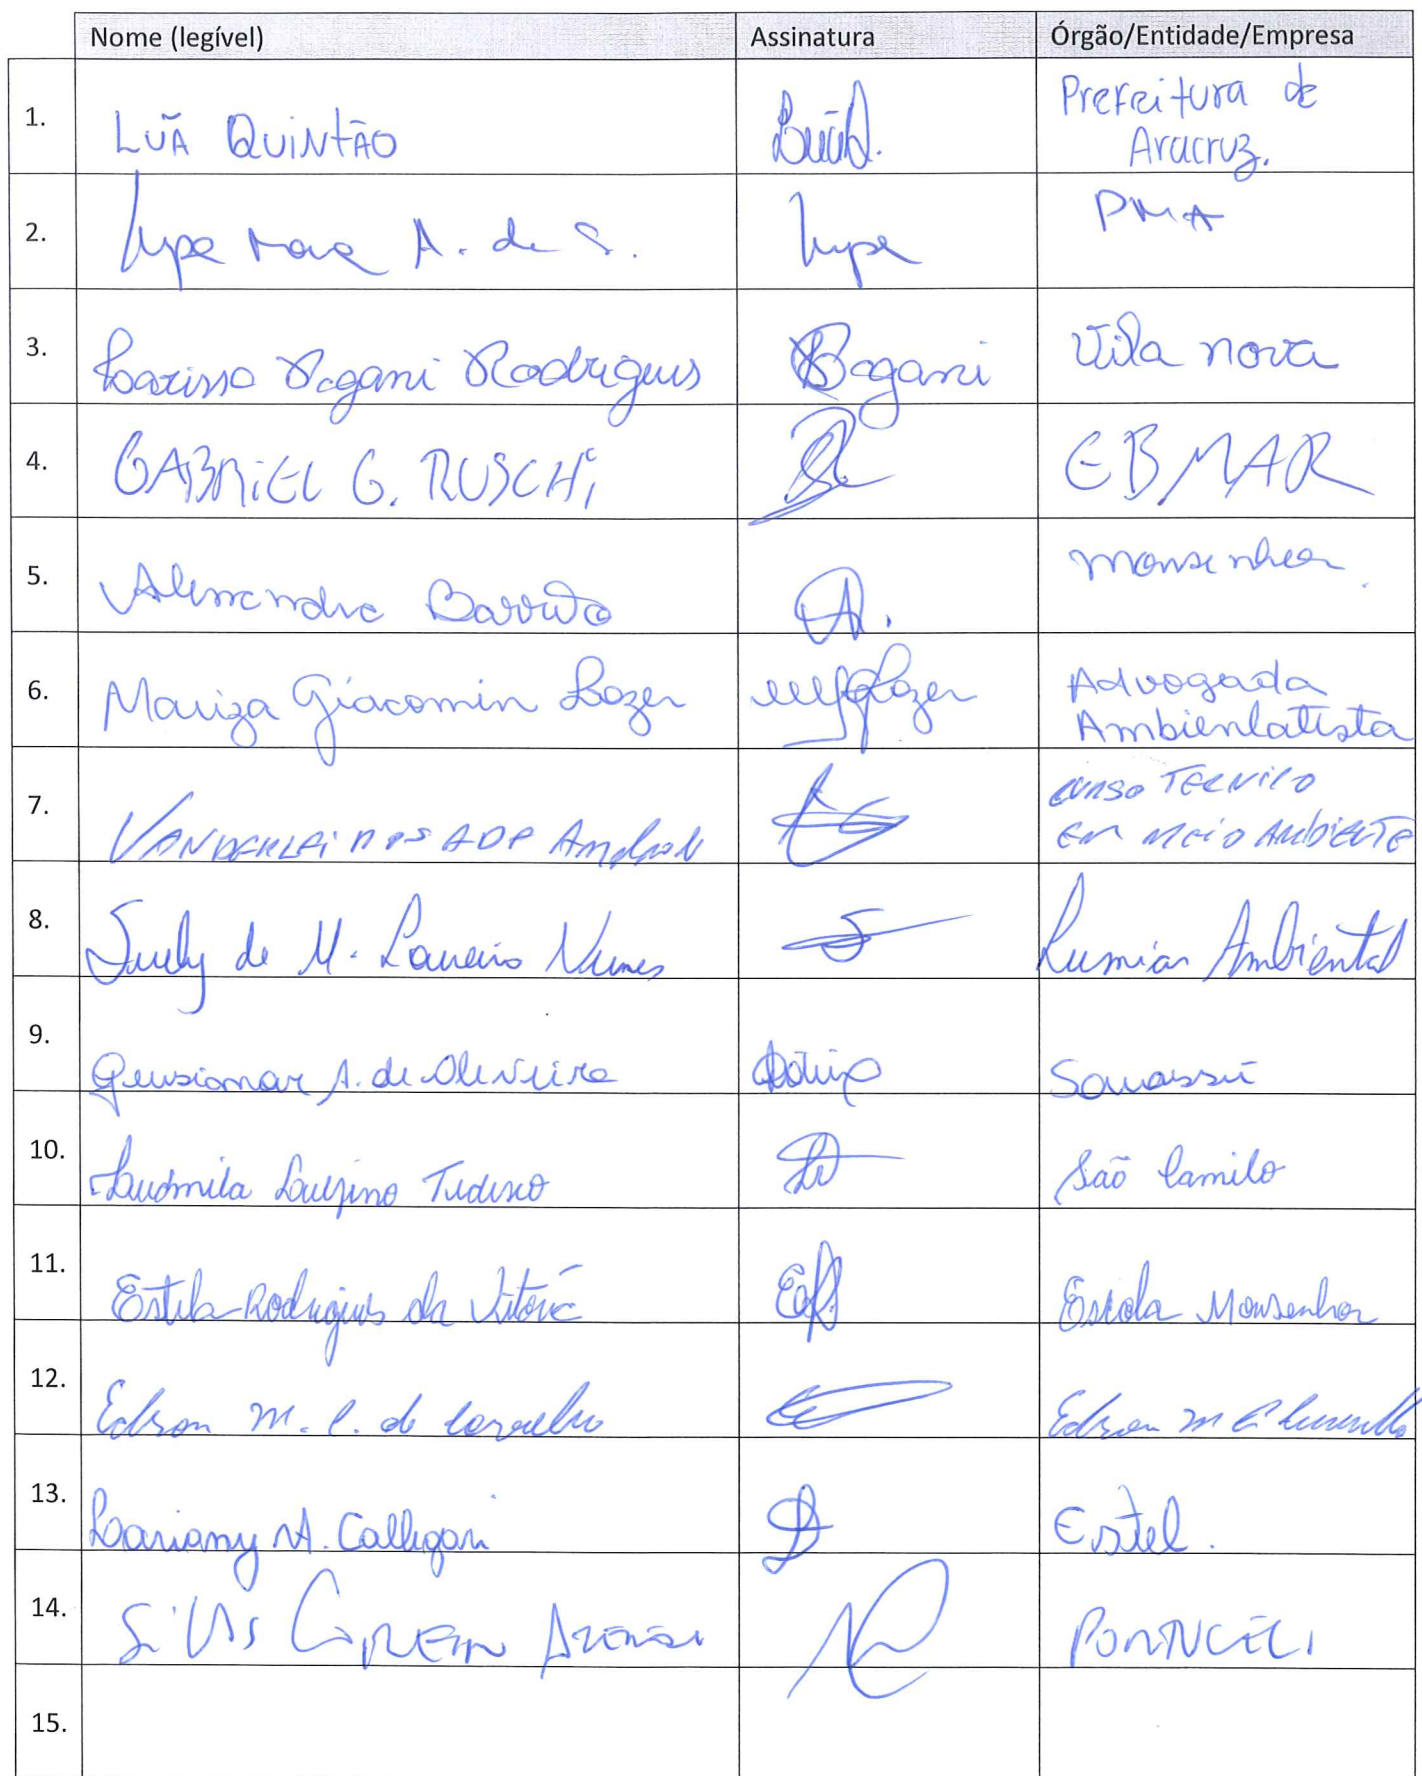 Nome (legível) Assinatura Órgão/Entidade/Empresa
1. LUÃ QUINTÃO Prefeitura de
Aracruz.
2. A. de S. PMA
3. Larissa Pagani Rodrigues Pagani Vila nova
4. GABRIEL G. RUSCHI EBMAR
5. Alessandra Barreto A. Monsenhor.
6. Mariza Giacomin Lozer Lozer Advogada
Ambienlatista
7. VANDERLEI CURSO TECNICO
EM MEIO AMBIENTE
8. Suely de M. Loureiro Nunes Lumiar Ambiental
9. Geusiomar A. de Oliveira Sauassú
10. Ludmila Tedesco São Camilo
11. Estela Rodrigues da Vitória Escola Monsenhor
12. Edson M. C. de Carvalho Edson M C Carvalho
13. Lariany A. Calligari Estel.
14.
15.